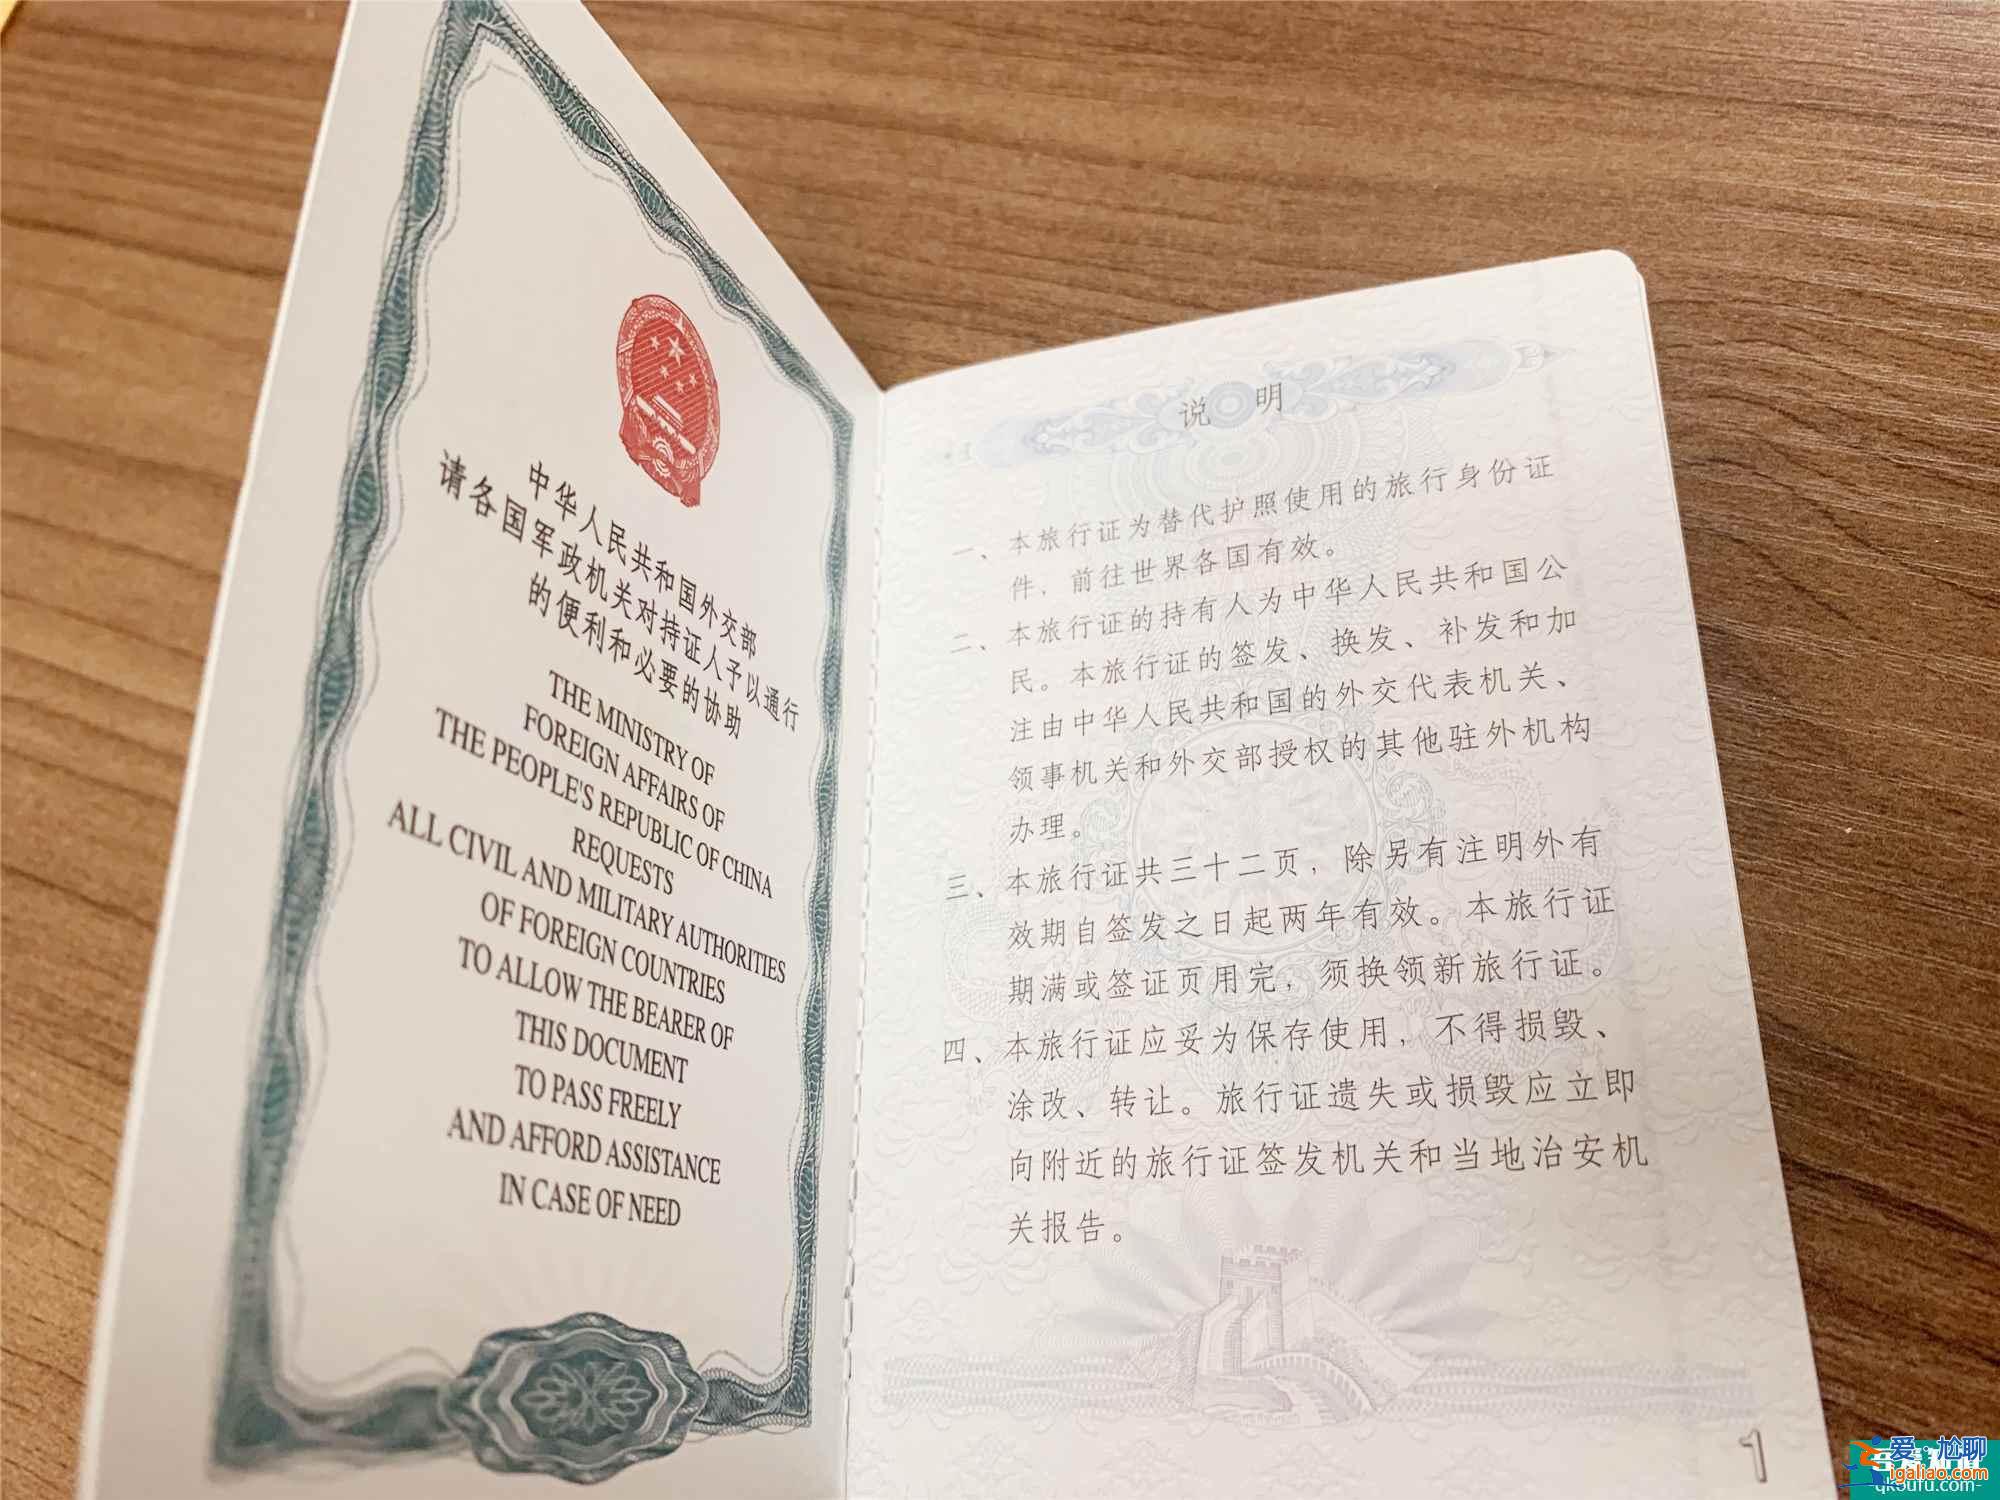 中华人民共和国外交部
请各国军政机关对持证人予以通行
的便利和必要的协助
THE MINISTRY OF
FOREIGN AFFAIRS OF
THE PEOPLE'S REPUBLIC OF CHINA
REQUESTS
ALL CIVIL AND MILITARY AUTHORITIES
OF FOREIGN COUNTRIES
TO ALLOW THE BEARER OF
THIS DOCUMENT
TO PASS FREELY
AND AFFORD ASSISTANCE
IN CASE OF NEED
说明
一、本旅行证为替代护照使用的旅行身份证
件，前往世界各国有效。
二、本旅行证的持有人为中华人民共和国公
民。本旅行证的签发、换发、补发和加
注由中华人民共和国的外交代表机关、
领事机关和外交部授权的其他驻外机构
办理。
三、本旅行证共三十二页，除另有注明外有
效期自签发之日起两年有效。本旅行证
期满或签证页用完，须换领新旅行证。
四、本旅行证应妥为保存使用，不得损毁、
涂改、转让。旅行证遗失或损毁应立即
向附近的旅行证签发机关和当地治安机
关报告。
1
爱·尬聊
igaliao.com
qkoufu.com